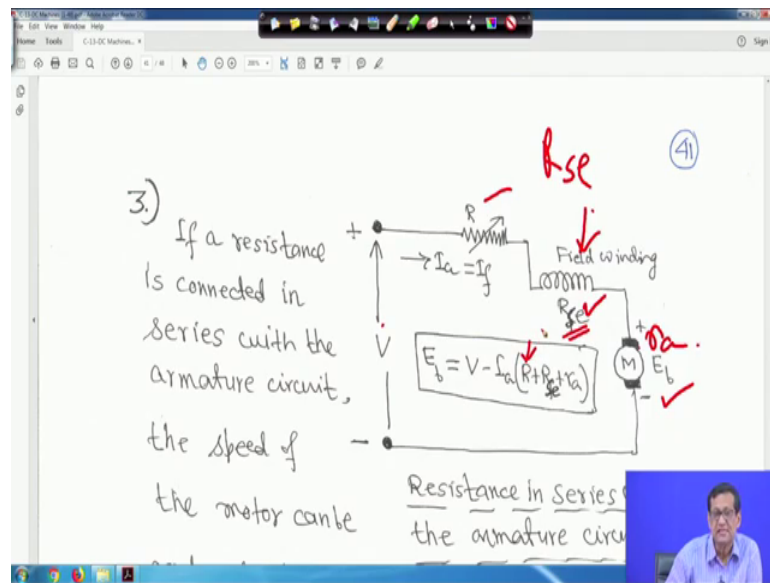 C-13-DC Machines (1-46).pdf - Adobe Acrobat Reader DC
File Edit View Window Help
Home Tools C-13-DC Machines... × Sign
41 / 46 200%
Rse
41
3.)
If a resistance
is connected in
series with the
armature circuit,
the speed of
the motor can be
+
R
→ Ia = If
Field winding
Rse
V
+ ra.
M Eb
-
Eb = V - Ia(R+Rse+ra)
-
Resistance in series
the armature circu